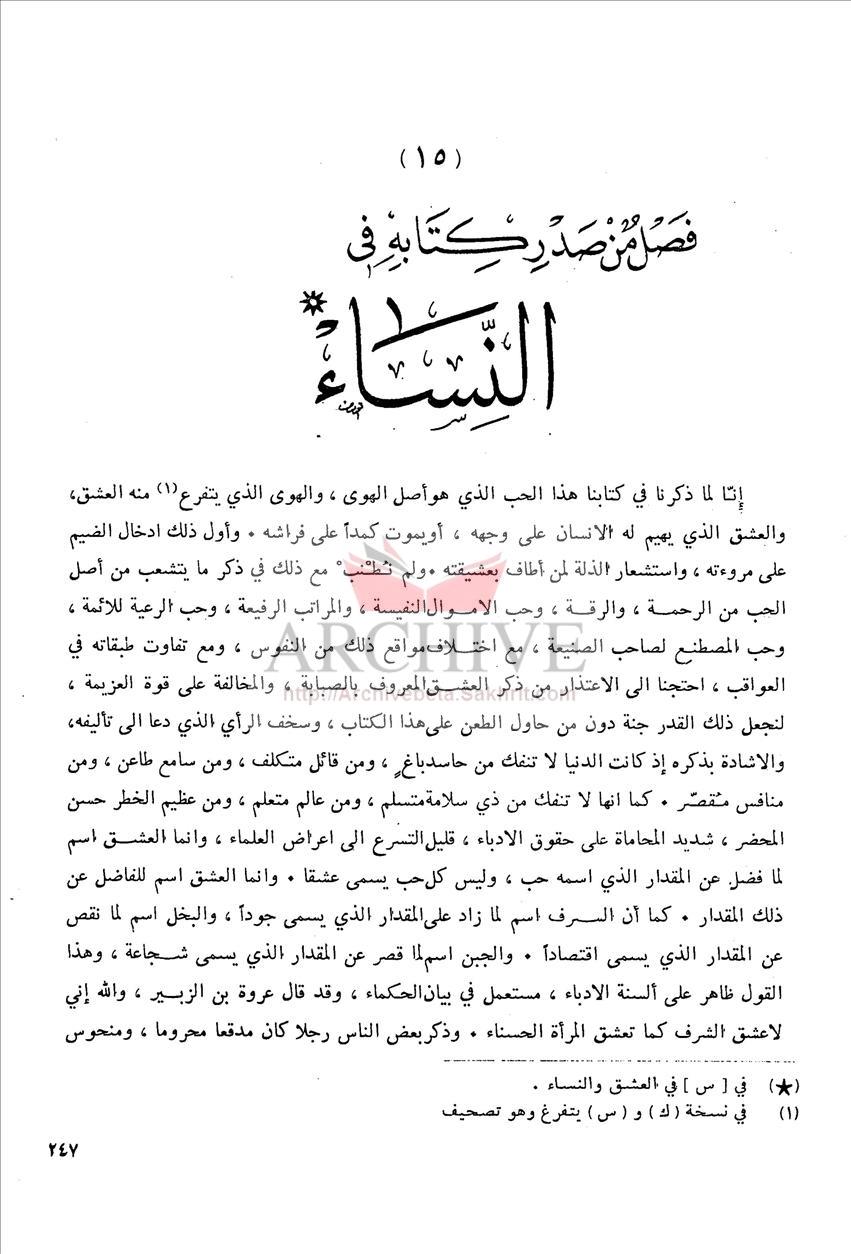 (١٥)
فَصْل مِنْ صَدْرِ كِتَابِهِ فِي
النِّسَاءْ *
إنّا لما ذكرنا في كتابنا هذا الحب الذي هو أصل الهوى ، والهوى الذي يتفرع(١) منه العشق،
والعشق الذي يهيم له الانسان على وجهه ، أو يموت كمداً على فراشه ٠ وأول ذلك ادخال الضيم
على مروءته ، واستشعار الذلة لمن أطاف بعشيقته ٠ ولم نُطْنب مع ذلك في ذكر ما يتشعب من أصل
الحب من الرحمــة ، والرقــة ، وحب الاموال النفيسة ، والمراتب الرفيعة ، وحب الرعية للائمة ،
وحب المصطنع لصاحب الصنيعة ، مع اختــلاف مواقع ذلك من النفوس ، ومع تفاوت طبقاته في
العواقب ، احتجنا الى الاعتذار من ذكر العشــق المعروف بالصبابة ، والمخالفة على قوة العزيمة ،
لنجعل ذلك القدر جنة دون من حاول الطعن على هذا الكتاب ، وسخف الرأي الذي دعا الى تأليفه،
والاشادة بذكره إذ كانت الدنيا لا تنفك من حاسد باغٍ ، ومن قائل متكلف ، ومن سامع طاعن ، ومن
منافس مُقصّر ٠ كما انها لا تنفك من ذي سلامة متسلم ، ومن عالم متعلم ، ومن عظيم الخطر حسن
المحضر ، شديد المحاماة على حقوق الادباء ، قليل التسرع الى اعراض العلماء ، وانما العشــق اسم
لما فضل عن المقدار الذي اسمه حب ، وليس كل حب يسمى عشقا ٠ وانما العشق اسم للفاضل عن
ذلك المقدار ٠ كما أن الســرف اسم لما زاد على المقدار الذي يسمى جوداً ، والبخل اسم لما نقص
عن المقدار الذي يسمى اقتصاداً ٠ والجبن اسم لما قصر عن المقدار الذي يسمى شــجاعة ، وهذا
القول ظاهر على ألسنة الادباء ، مستعمل في بيان الحكماء ، وقد قال عروة بن الزبــير ، والله إني
لاعشق الشرف كما تعشق المرأة الحسناء ٠ وذكر بعض الناس رجلا كان مدقعا محروما ، ومنحوس
(★) في [ س ] في العشق والنساء .
(١) في نسخة (ك) و (س) يتفرغ وهو تصحيف
٢٤٧
ARCHIVE
http://Archivebeta.Sakhrit.com